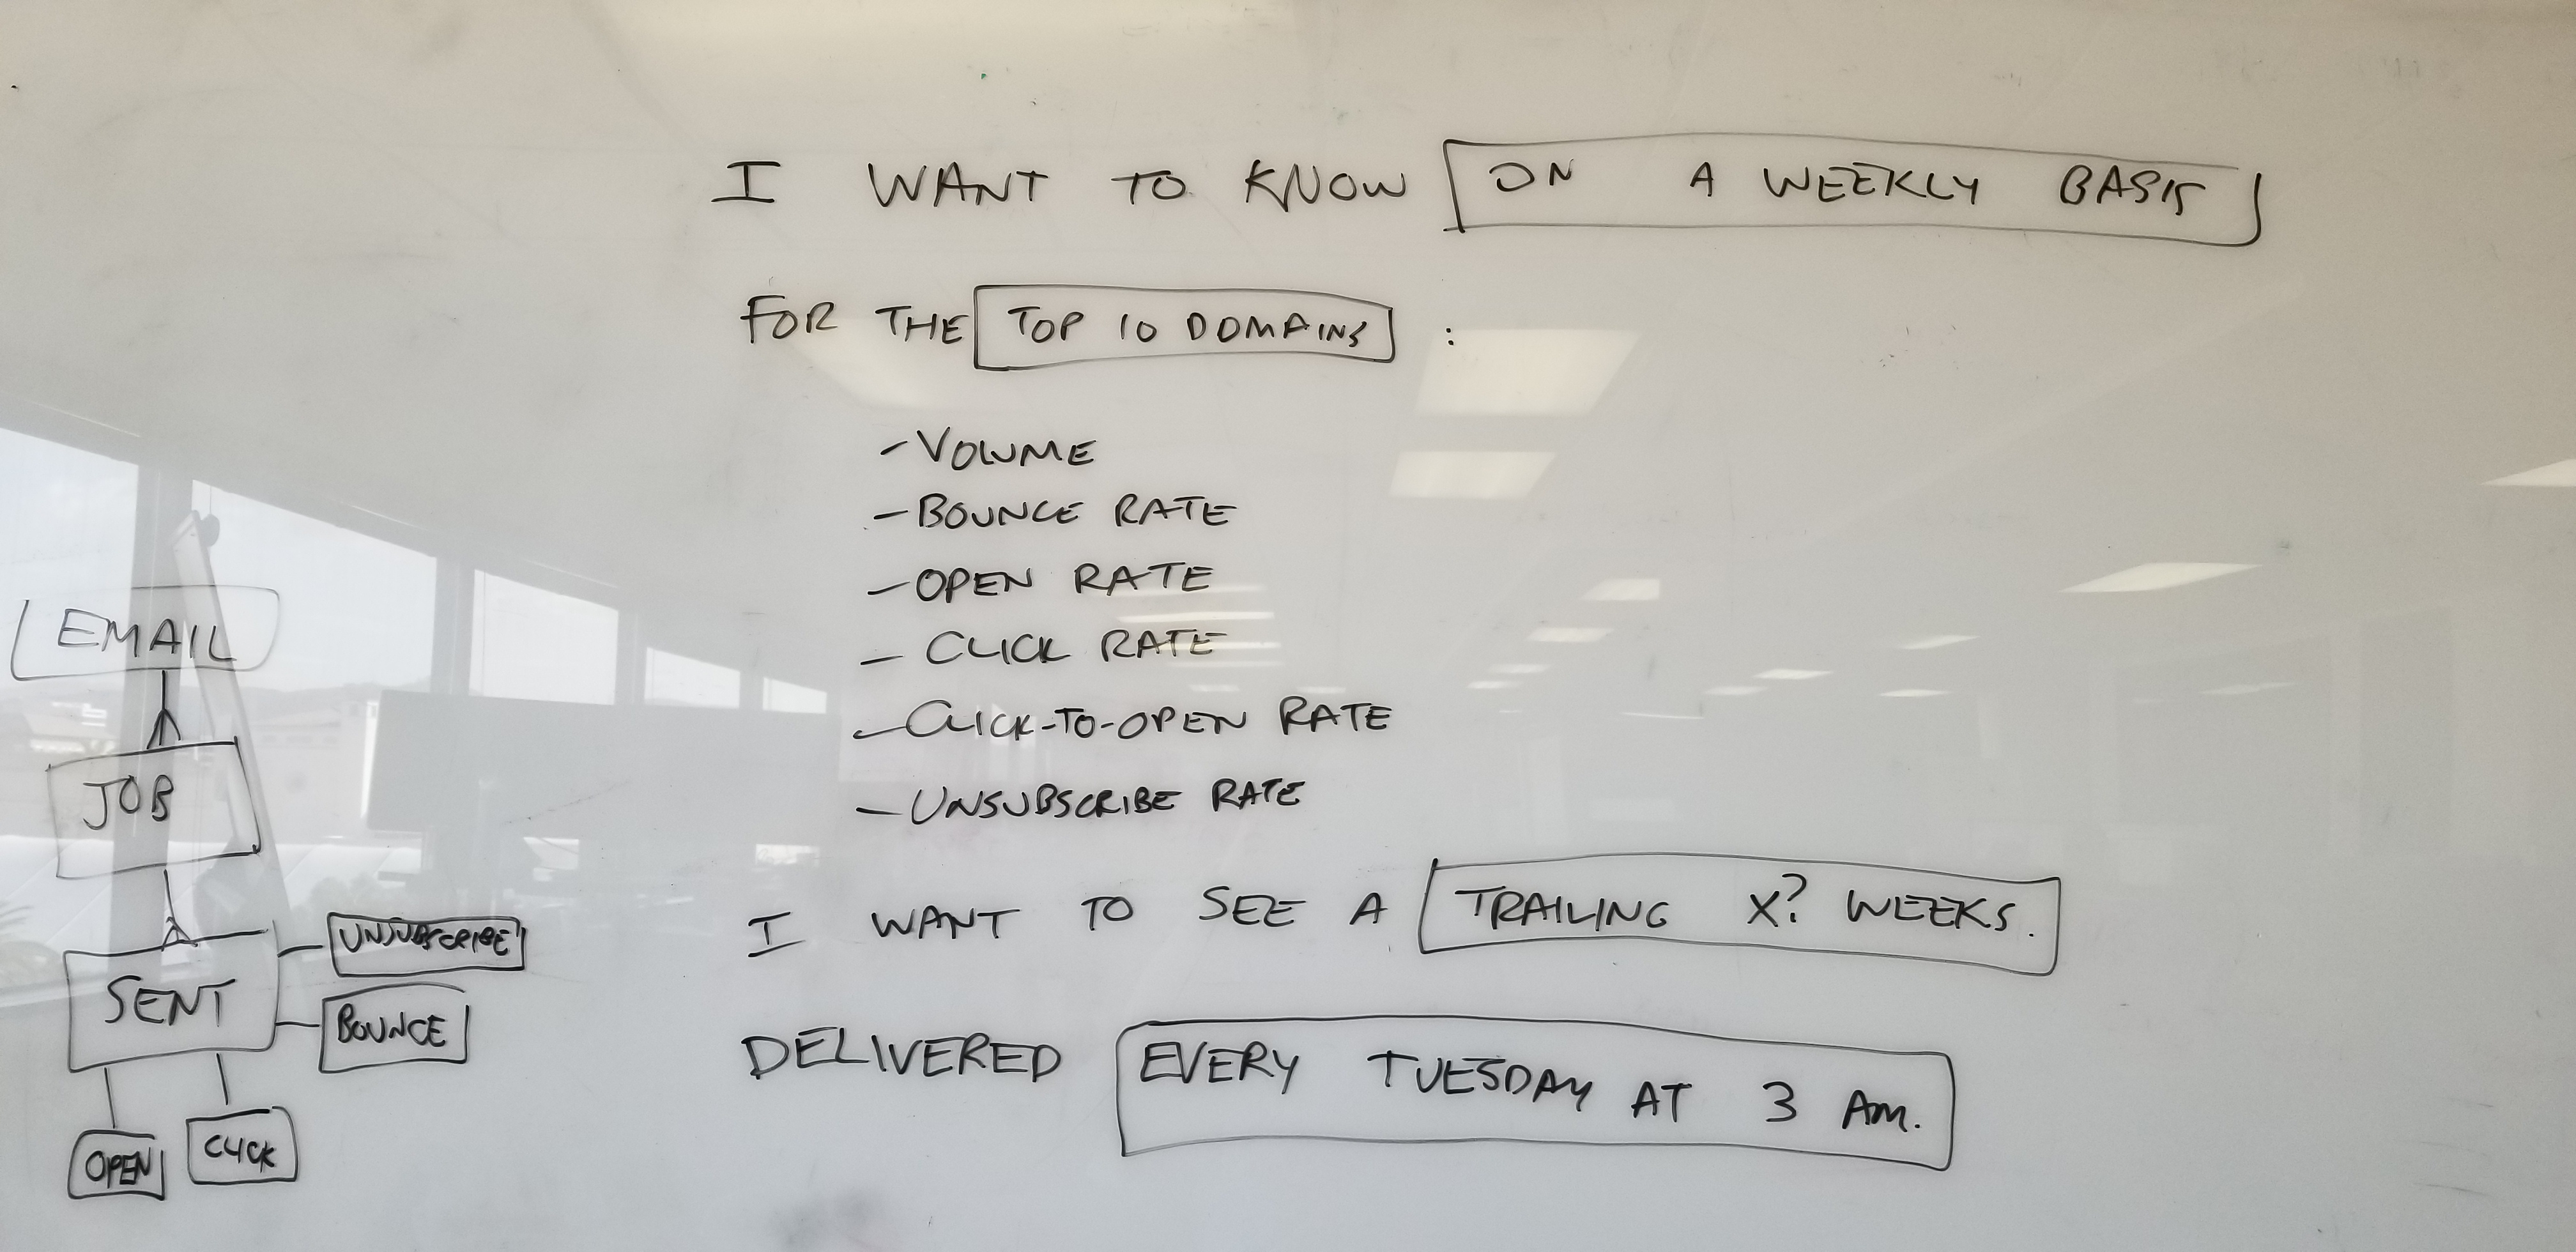 I WANT TO KNOW ON A WEEKLY BASIS
FOR THE TOP 10 DOMAINS :
- VOLUME
- BOUNCE RATE
- OPEN RATE
- CLICK RATE
- CLICK-TO-OPEN RATE
- UNSUBSCRIBE RATE
I WANT TO SEE A TRAILING X? WEEKS.
DELIVERED EVERY TUESDAY AT 3 AM.
EMAIL
JOB
SENT
UNSUBSCRIBE
BOUNCE
OPEN
CLICK